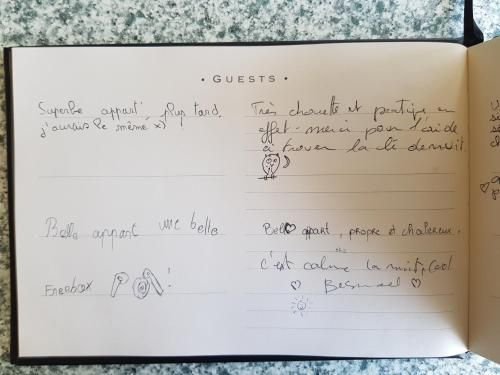 • GUESTS •
Superbe appart' Plus tard,
j'aurais le même x)
Très chouette et pratique en
effet - merci pour l'aide
à trouver la clé de nuit.
Belle appart une belle
Freebox !
Bell appart, propre et chaleureux,
c'est calme la nuit, cool